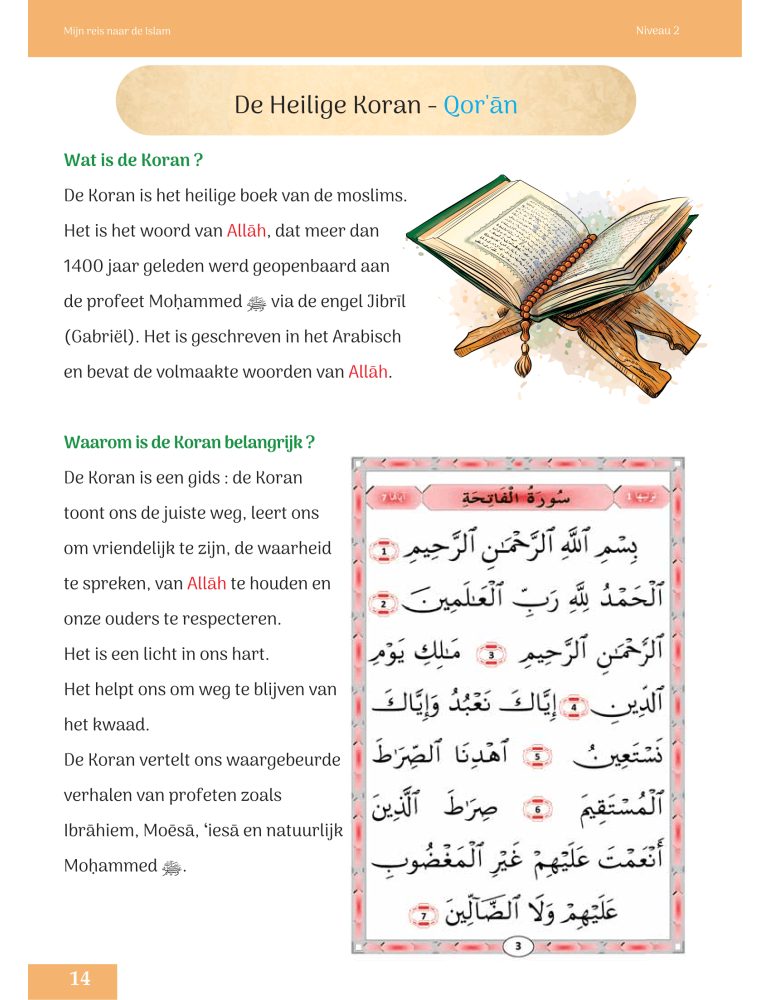 Mijn reis naar de Islam
Niveau 2
De Heilige Koran - Qor'ān
Wat is de Koran ?
De Koran is het heilige boek van de moslims.
Het is het woord van Allāh, dat meer dan
1400 jaar geleden werd geopenbaard aan
de profeet Moḥammed ﷺ via de engel Jibrīl
(Gabriël). Het is geschreven in het Arabisch
en bevat de volmaakte woorden van Allāh.
Waarom is de Koran belangrijk ?
De Koran is een gids : de Koran
toont ons de juiste weg, leert ons
om vriendelijk te zijn, de waarheid
te spreken, van Allāh te houden en
onze ouders te respecteren.
Het is een licht in ons hart.
Het helpt ons om weg te blijven van
het kwaad.
De Koran vertelt ons waargebeurde
verhalen van profeten zoals
Ibrāhiem, Moēsā, ʻiesā en natuurlijk
Moḥammed ﷺ.
سُورَةُ الْفَاتِحَةِ
بِسْمِ ٱللَّهِ ٱلرَّحْمَٰنِ ٱلرَّحِيمِ 1
ٱلْحَمْدُ لِلَّهِ رَبِّ ٱلْعَٰلَمِينَ 2
ٱلرَّحْمَٰنِ ٱلرَّحِيمِ 3 مَٰلِكِ يَوْمِ
ٱلدِّينِ 4 إِيَّاكَ نَعْبُدُ وَإِيَّاكَ
نَسْتَعِينُ 5 ٱهْدِنَا ٱلصِّرَٰطَ
ٱلْمُسْتَقِيمَ 6 صِرَٰطَ ٱلَّذِينَ
أَنْعَمْتَ عَلَيْهِمْ غَيْرِ ٱلْمَغْضُوبِ
عَلَيْهِمْ وَلَا ٱلضَّآلِّينَ 7
3
14